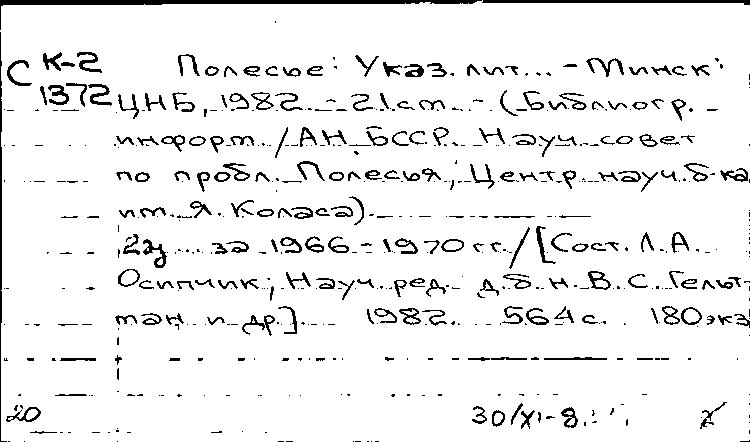 С К-2 Полесье: Указ. лит... - Минск:
1372 ЦНБ, 1982. - 21 см. - (Библиогр.
информ. / АН БССР. Науч. совет
по пробл. Полесья, Центр. науч. б-ка
им. Я. Коласа).
... за 1966-1970 гг. / [Сост. Л. А.
Осипчик; Науч. ред. д.б.н. В. С. Гельт-
ман и др.]. 1982. 564 с. 180 экз
20 30/XI-8